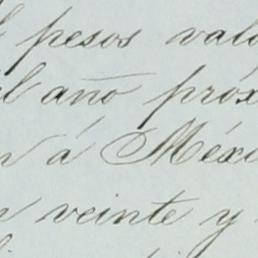 pesos valo
año próx
á Méxi
veinte y